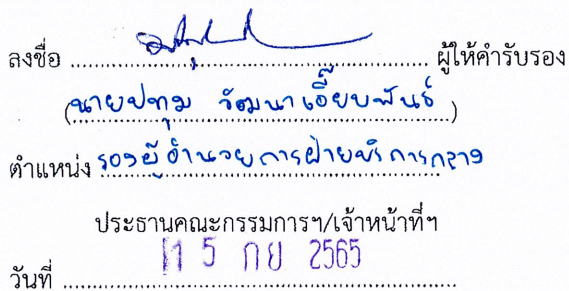 ลงชื่อ ........................................ ผู้ให้คำรับรอง
(นายปทุม วัฒนาเอี๊ยบพันธ์)
ตำแหน่ง รองผู้อำนวยการฝ่ายบริการกลาง
ประธานคณะกรรมการฯ/เจ้าหน้าที่ฯ
วันที่ 15 กย 2565